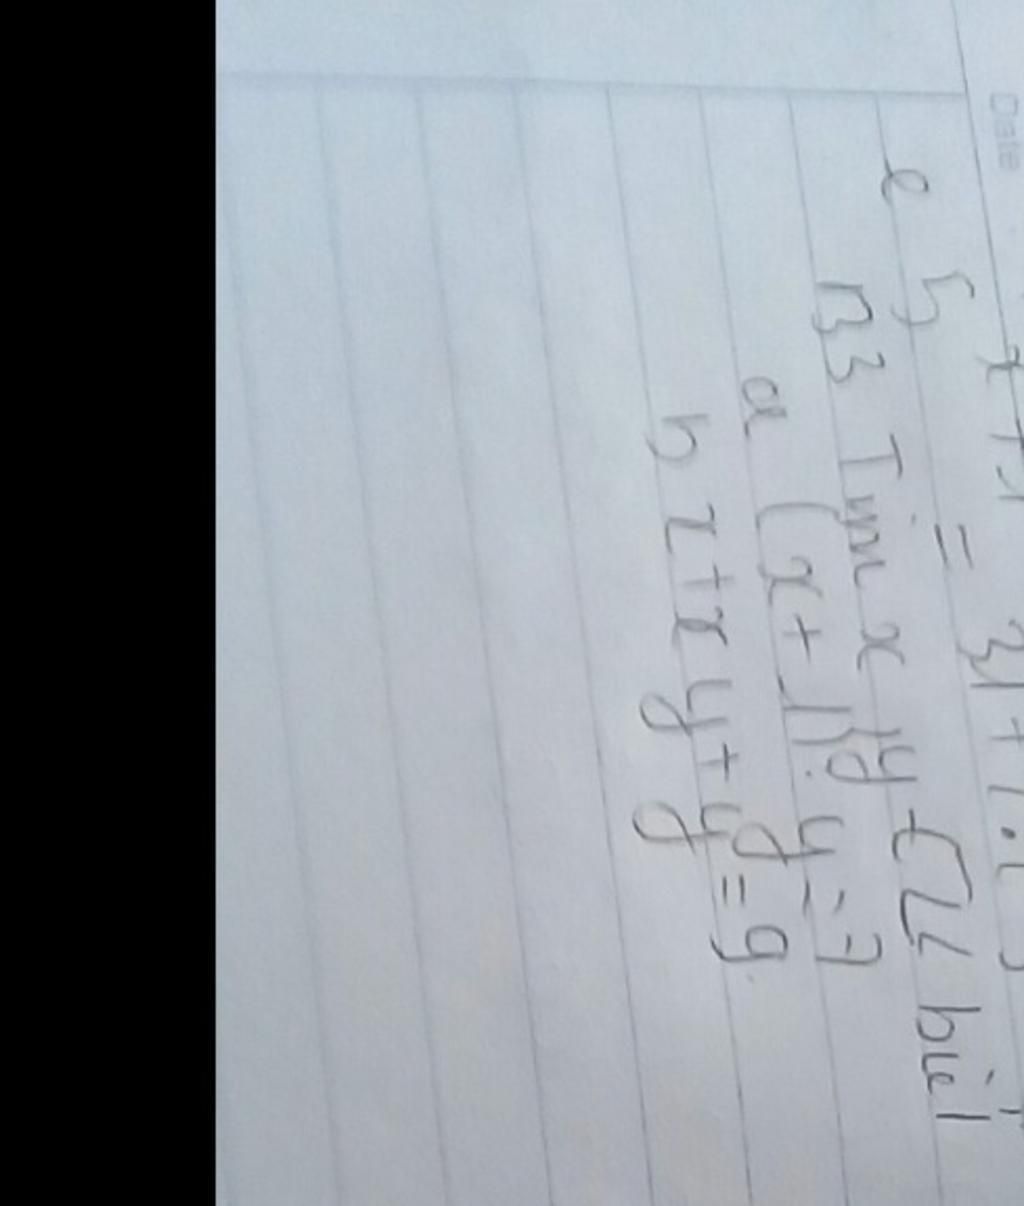 Date
e 5 =
B3 Tìm x, y ∈ Z biết
a (x+1).y=7
b x+xy+y=9